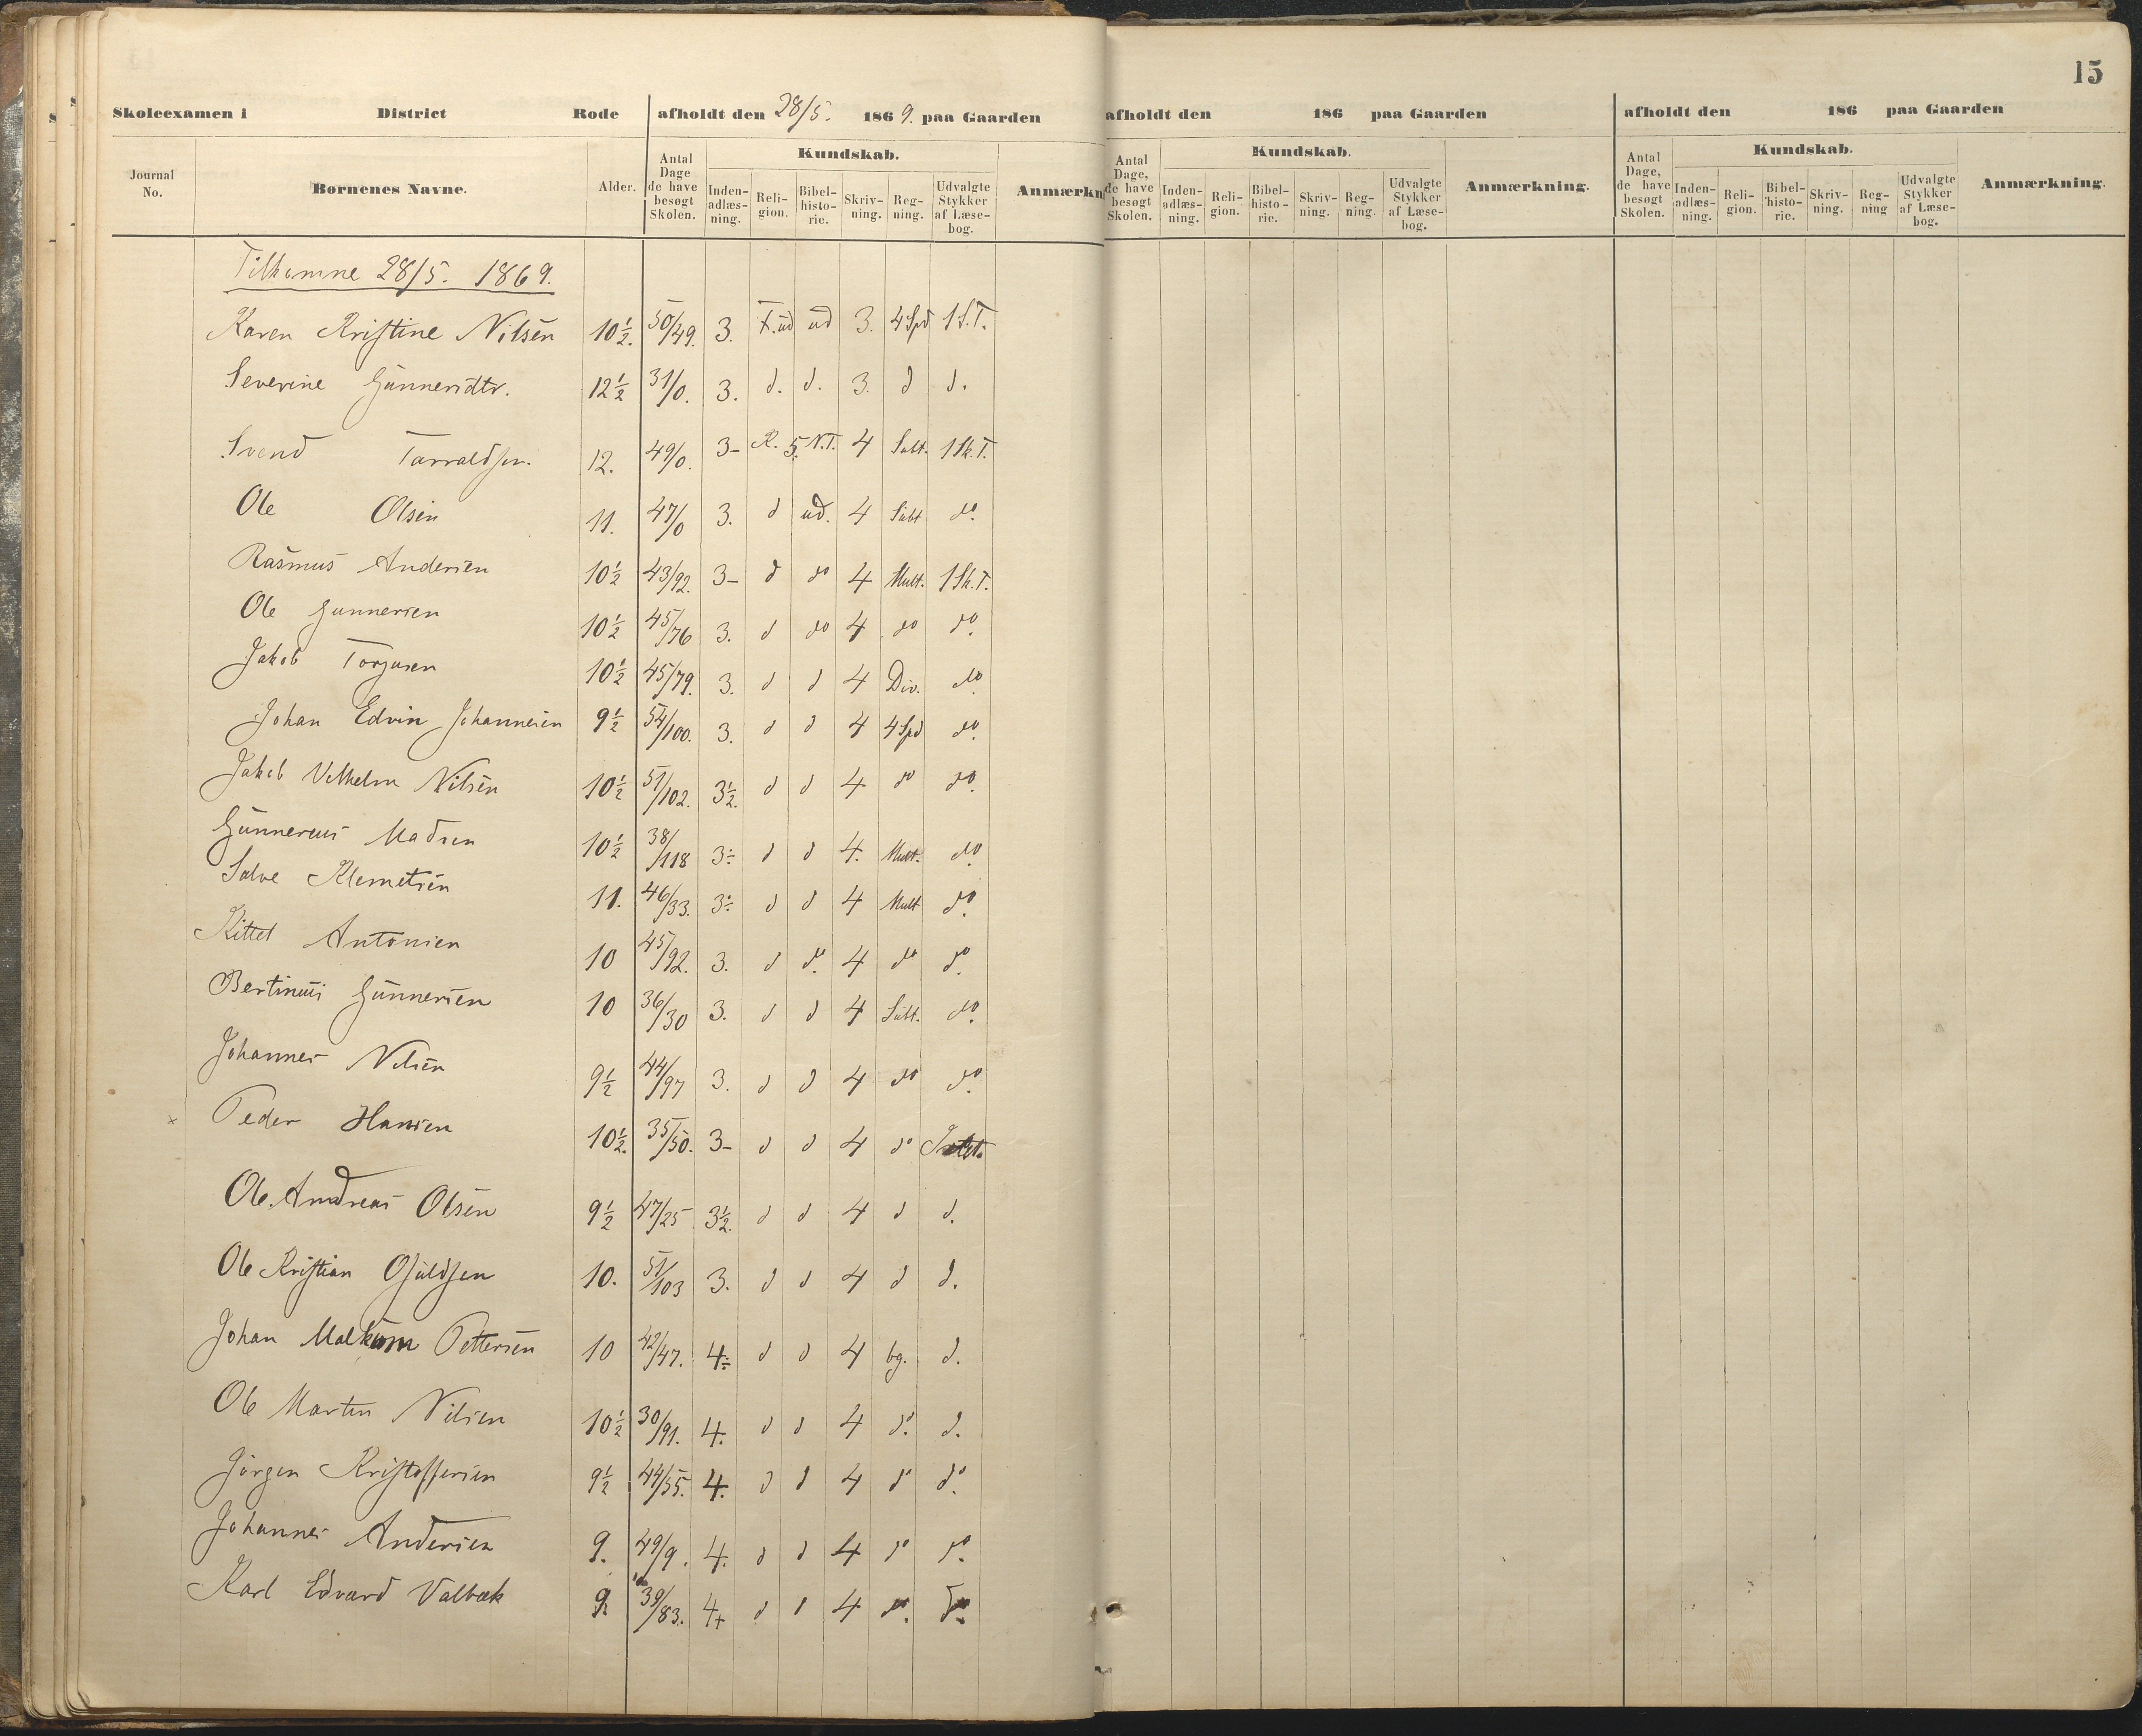 15
Skoleexamen i District Rode afholdt den 28/5. 1869. paa Gaarden
afholdt den 186 paa Gaarden
afholdt den 186 paa Gaarden
Journal No. Børnenes Navne. Alder. Antal Dage de have besøgt Skolen. Kundskab. Inden-adlæs-ning. Reli-gion. Bibel-histo-rie. Skriv-ning. Reg-ning. Udvalgte Stykker af Læse-bog. Anmærkn
Antal Dage, de have besøgt Skolen. Kundskab. Inden-adlæs-ning. Reli-gion. Bibel-histo-rie. Skriv-ning. Reg-ning. Udvalgte Stykker af Læse-bog. Anmærkning.
Antal Dage, de have besøgt Skolen. Kundskab. Inden-adlæs-ning. Reli-gion. Bibel-histo-rie. Skriv-ning. Reg-ning Udvalgte Stykker af Læse-bog. Anmærkning.
28/5. 1869.
Karen Kristine Nilsen 10½. 50/49. 3. F. ud ud 3. 4 Spd 1 S.T.
Severine Gunnersdtr. 12½ 31/0. 3. d. d. 3. d d.
Svend Tarraldsen. 12. 49/0. 3- R. 5. N.T. 4 Subt. 1 Sk.T.
Ole Olsen 11. 47/0 3. d ud. 4 Subt do.
Rasmus Andersen 10½ 43/92. 3- d do 4 Mult. 1 Sk.T.
Ole Gunnersen 10½ 45/76 3. d do 4 do do.
Jakob Torjusen 10½ 45/79. 3. d d 4 Div. do.
Johan Edvin Johannesen 9½ 54/100. 3. d d 4 4 Spd do.
Jakob Vilhelm Nilsen 10½ 51/102. 3½. d d 4 do do.
Gunnerius Madsen 10½ 38/118 3÷ d d 4. Mult. do.
Salve Klemetsen 11. 46/33. 3÷ d d 4 Mult do.
Kittel Antonsen 10 45/92. 3. d do. 4 do do.
Bertinius Gunnersen 10 36/30 3. d d 4 Subt. do.
Johannes Nilsen 9½ 44/97 3. d d 4 do do.
x Peder Hansen 10½. 35/50. 3- d d 4 do Intet.
Ole Andreas Olsen 9½ 47/25 3½. d d 4 d d.
Ole Kristian Osuldsen 10. 51/103 3. d d 4 d d.
Johan Malkom Pettersen 10 42/47. 4÷ d d 4 bg. d.
Ole Martin Nilsen 10½ 30/91. 4. d d 4 do. d.
Jørgen Kristoffersen 9½ 44/55. 4. d d 4 do do.
Johannes Andersen 9. 49/9. 4. d d 4 do do.
Karl Edvard Valbæk 9 39/83. 4+ d d 4 do. do.